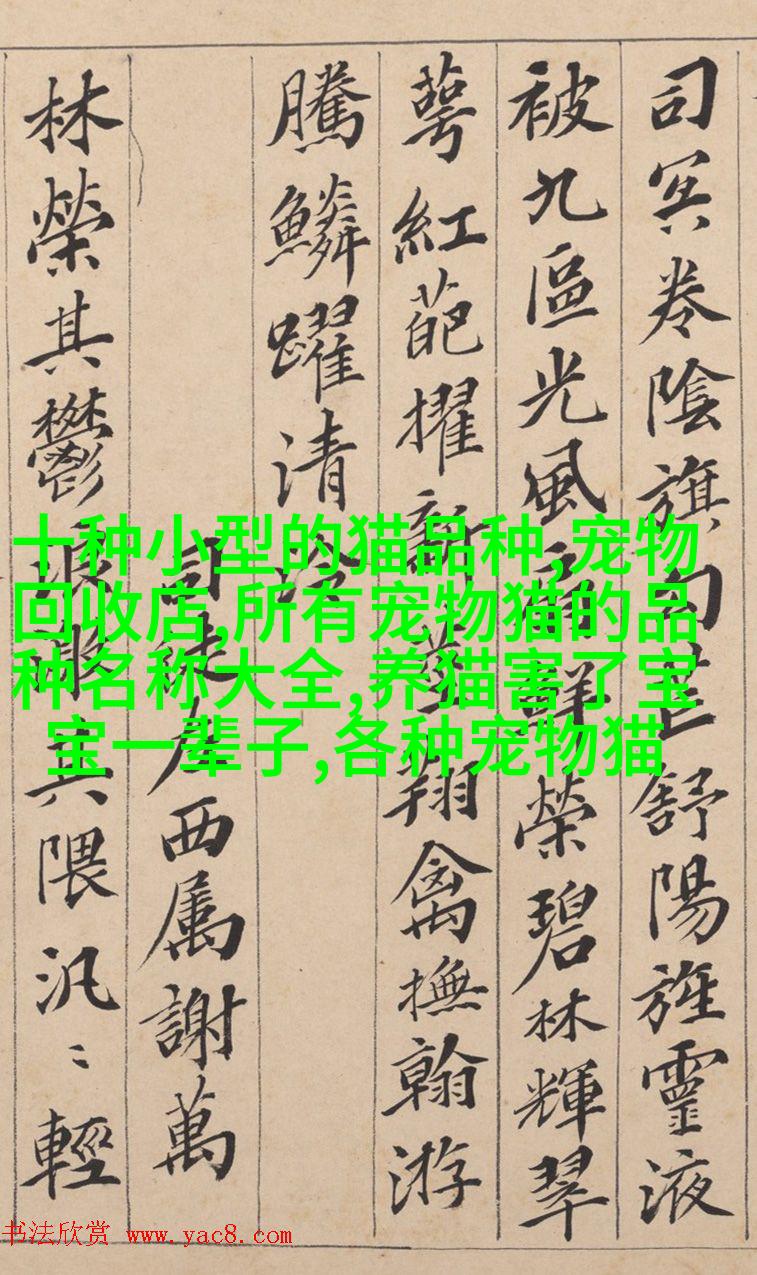 司冥卷陰旗句芒舒陽旌靈液
被九區光風扇鮮榮碧林輝翠
萼紅葩擢新莖翔禽撫翰游
騰鱗躍清泠
司徒左西属謝萬
林榮其鬱浪激其隈汎〻輕
十种小型的猫品种,宠物
回收店,所有宠物猫的品
种名称大全,养猫害了宝
宝一辈子,各种宠物猫
书法欣赏 www.yac8.com